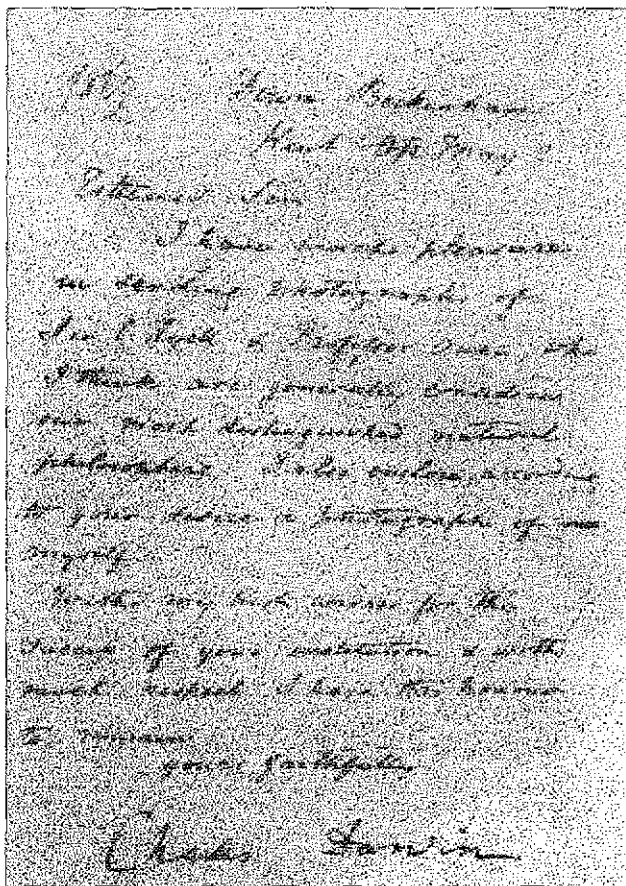 Down Beckenham
Kent
Sir
I have much pleasure
in sending photographs of
Sir C. Lyell & Professor Owen, who
I think are generally considered
our most distinguished natural
philosophers I also enclose according
to your desire a photograph of me
myself
With my best wishes for the
success of your institution & with
much respect I have the honour
to remain
yours faithfully
Charles Darwin